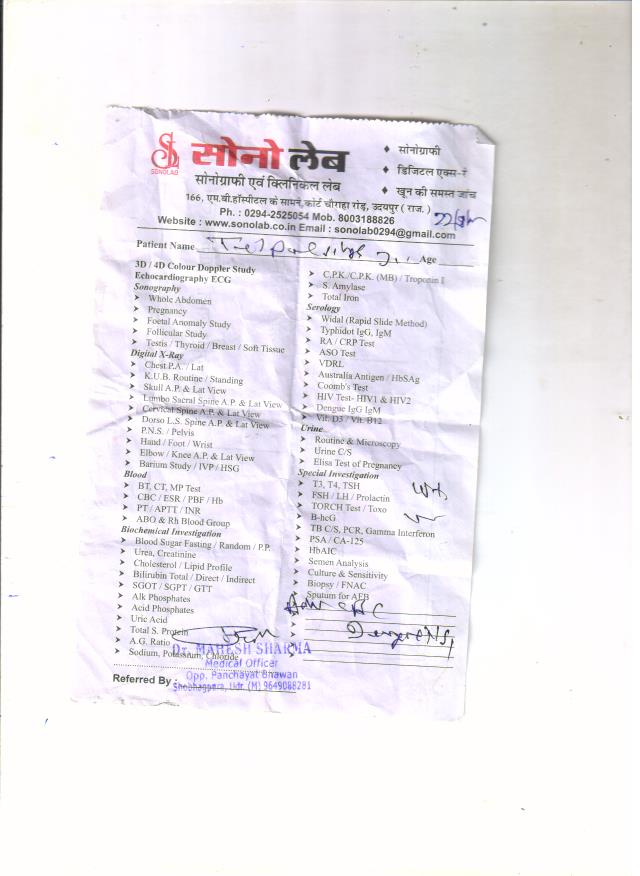 SL
SONOLAB
सोनो लेब
सोनोग्राफी एवं क्लिनिकल लेब
♦ सोनोग्राफी
♦ डिजिटल एक्स-रे
♦ खून की समस्त जांच
166, एम.बी.हॉस्पीटल के सामने,कोर्ट चौराहा रोड़, उदयपुर ( राज. )
Ph. : 0294-2525054 Mob. 8003188826
Website : www.sonolab.co.in Email : sonolab0294@gmail.com
Patient Name Age
3D / 4D Colour Doppler Study
Echocardiography ECG
Sonography
➤ Whole Abdomen
➤ Pregnancy
➤ Foetal Anomaly Study
➤ Follicular Study
➤ Testis / Thyroid / Breast / Soft Tissue
Digital X-Ray
➤ Chest P.A. / Lat
➤ K.U.B. Routine / Standing
➤ Skull A.P. & Lat View
➤ Lumbo Sacral Spine A.P. & Lat View
➤ Cervical Spine A.P. & Lat View
➤ Dorso L.S. Spine A.P. & Lat View
➤ P.N.S. / Pelvis
➤ Hand / Foot / Wrist
➤ Elbow / Knee A.P. & Lat View
➤ Barium Study / IVP / HSG
Blood
➤ BT, CT, MP Test
➤ CBC / ESR / PBF / Hb
➤ PT / APTT / INR
➤ ABO & Rh Blood Group
Biochemical Investigation
➤ Blood Sugar Fasting / Random / P.P.
➤ Urea, Creatinine
➤ Cholesterol / Lipid Profile
➤ Bilirubin Total / Direct / Indirect
➤ SGOT / SGPT / GTT
➤ Alk Phosphates
➤ Acid Phosphates
➤ Uric Acid
➤ Total S. Protein
➤ A.G. Ratio
➤ Sodium, Potassium, Chloride
➤ C.P.K./C.P.K. (MB) / Troponin I
➤ S. Amylase
➤ Total Iron
Serology
➤ Widal (Rapid Slide Method)
➤ Typhidot IgG, IgM
➤ RA / CRP Test
➤ ASO Test
➤ VDRL
➤ Australia Antigen / HbSAg
➤ Coomb's Test
➤ HIV Test- HIV1 & HIV2
➤ Dengue IgG IgM
➤ Vit. D3 / Vit. B12
Urine
➤ Routine & Microscopy
➤ Urine C/S
➤ Elisa Test of Pregnancy
Special Investigation
➤ T3, T4, TSH
➤ FSH / LH / Prolactin
➤ TORCH Test / Toxo
➤ B-hcG
➤ TB C/S, PCR, Gamma Interferon
➤ PSA / CA-125
➤ HbAIC
➤ Semen Analysis
➤ Culture & Sensitivity
➤ Biopsy / FNAC
➤ Sputum for AFB
Dr. MAHESH SHARMA
Medical Officer
Opp. Panchayat Bhawan
Shobhagpura, Udr. (M) 9649088281
Referred By :